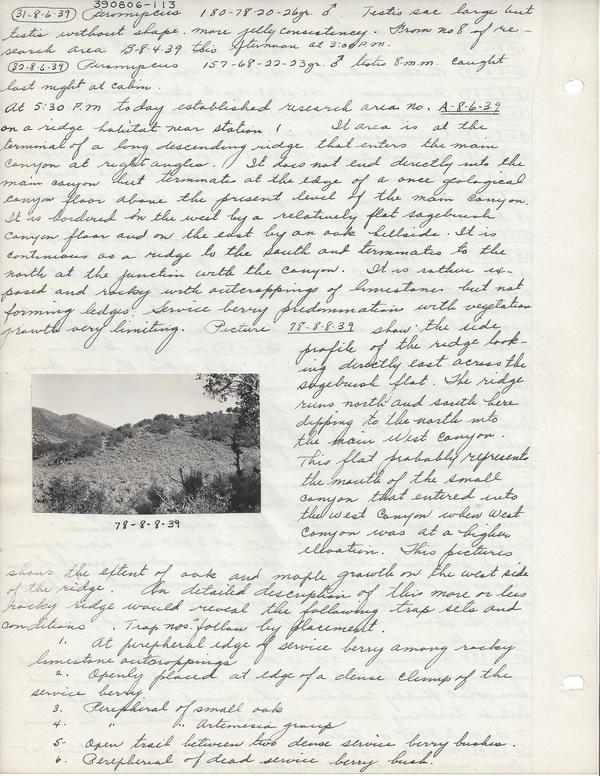 390806-113
(31-8-6-39) Peromyscus 180-78-20-26gr. ♂ Testis sac large but
testis without shape, more jelly consistency. From no 8 of re-
search area B-8-4-39 this afternoon at 3:00 P.M.
(32-8-6-39) Peromyscus 157-68-22-23gr. ♂ testis 8 m.m. caught
last night at cabin.
At 5:30 P.M today established research area no. A-8-6-39
on a ridge habitat near station 1 It area is at the
terminal of a long descending ridge that enters the main
canyon at right angles. It does not end directly into the
main canyon but terminate at the edge of a once geological
canyon floor above the present level of the main canyon.
It is bordered on the west by a relatively flat sagebrush
canyon floor and on the east by an oak hillside. It is
continious as a ridge to the south and terminates to the
north at the junction with the canyon. It is rather ex-
posed and rocky with outcroppings of limestone but not
forming ledges. Service berry predomination with vegetation
growth very limiting. Picture 78-8-8-39 show the side
profile of the ridge look-
ing directly east across the
sagebrush flat. The ridge
runs north and south here
dipping to the north into
the main West Canyon.
This flat probably represents
the mouth of the small
canyon that entered into
the West Canyon when West
Canyon was at a higher
elevation. This pictures
78-8-8-39
shows the extent of oak and maple growth on the west side
of the ridge. An detailed description of this more or less
rocky ridge would reveal the following trap sets and
conditions. Trap nos. follow by placement.
1. At peripheral edge of service berry among rocky
limestone outcroppings
2. Openly placed at edge of a dense clump of the
service berry.
3. Peripheral of small oak
4. " " Artemesia group
5- Open trail between two dense service berry bushes.
6. Perepherial of dead service berry bush.